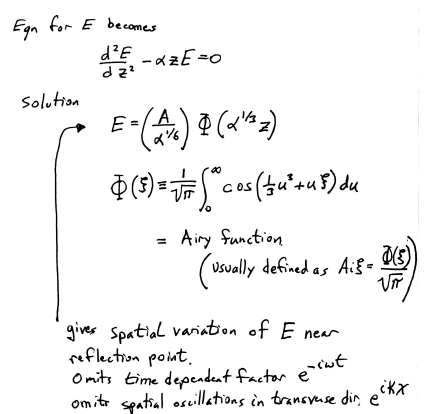 Eqn for E becomes
d²E/dz² - αzE = 0
Solution
E = (A/α^{1/6}) Φ(α^{1/3} z)
Φ(ξ) ≡ 1/√π ∫₀^∞ cos(⅓u³ + uξ) du
= Airy function
(usually defined as Aiξ = Φ(ξ)/√π)
gives spatial variation of E near
reflection point.
Omits time dependent factor e^{-iωt}
omits spatial oscillations in transverse dir. e^{iKx}